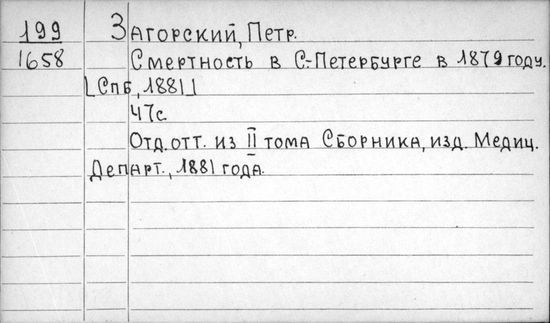 199
1658
Загорский, Петр.
Смертность в С-Петербурге в 1879 году.
[Спб, 1881]
47с.
Отд. отт. из II тома Сборника, изд. Медиц.
Департ., 1881 года.